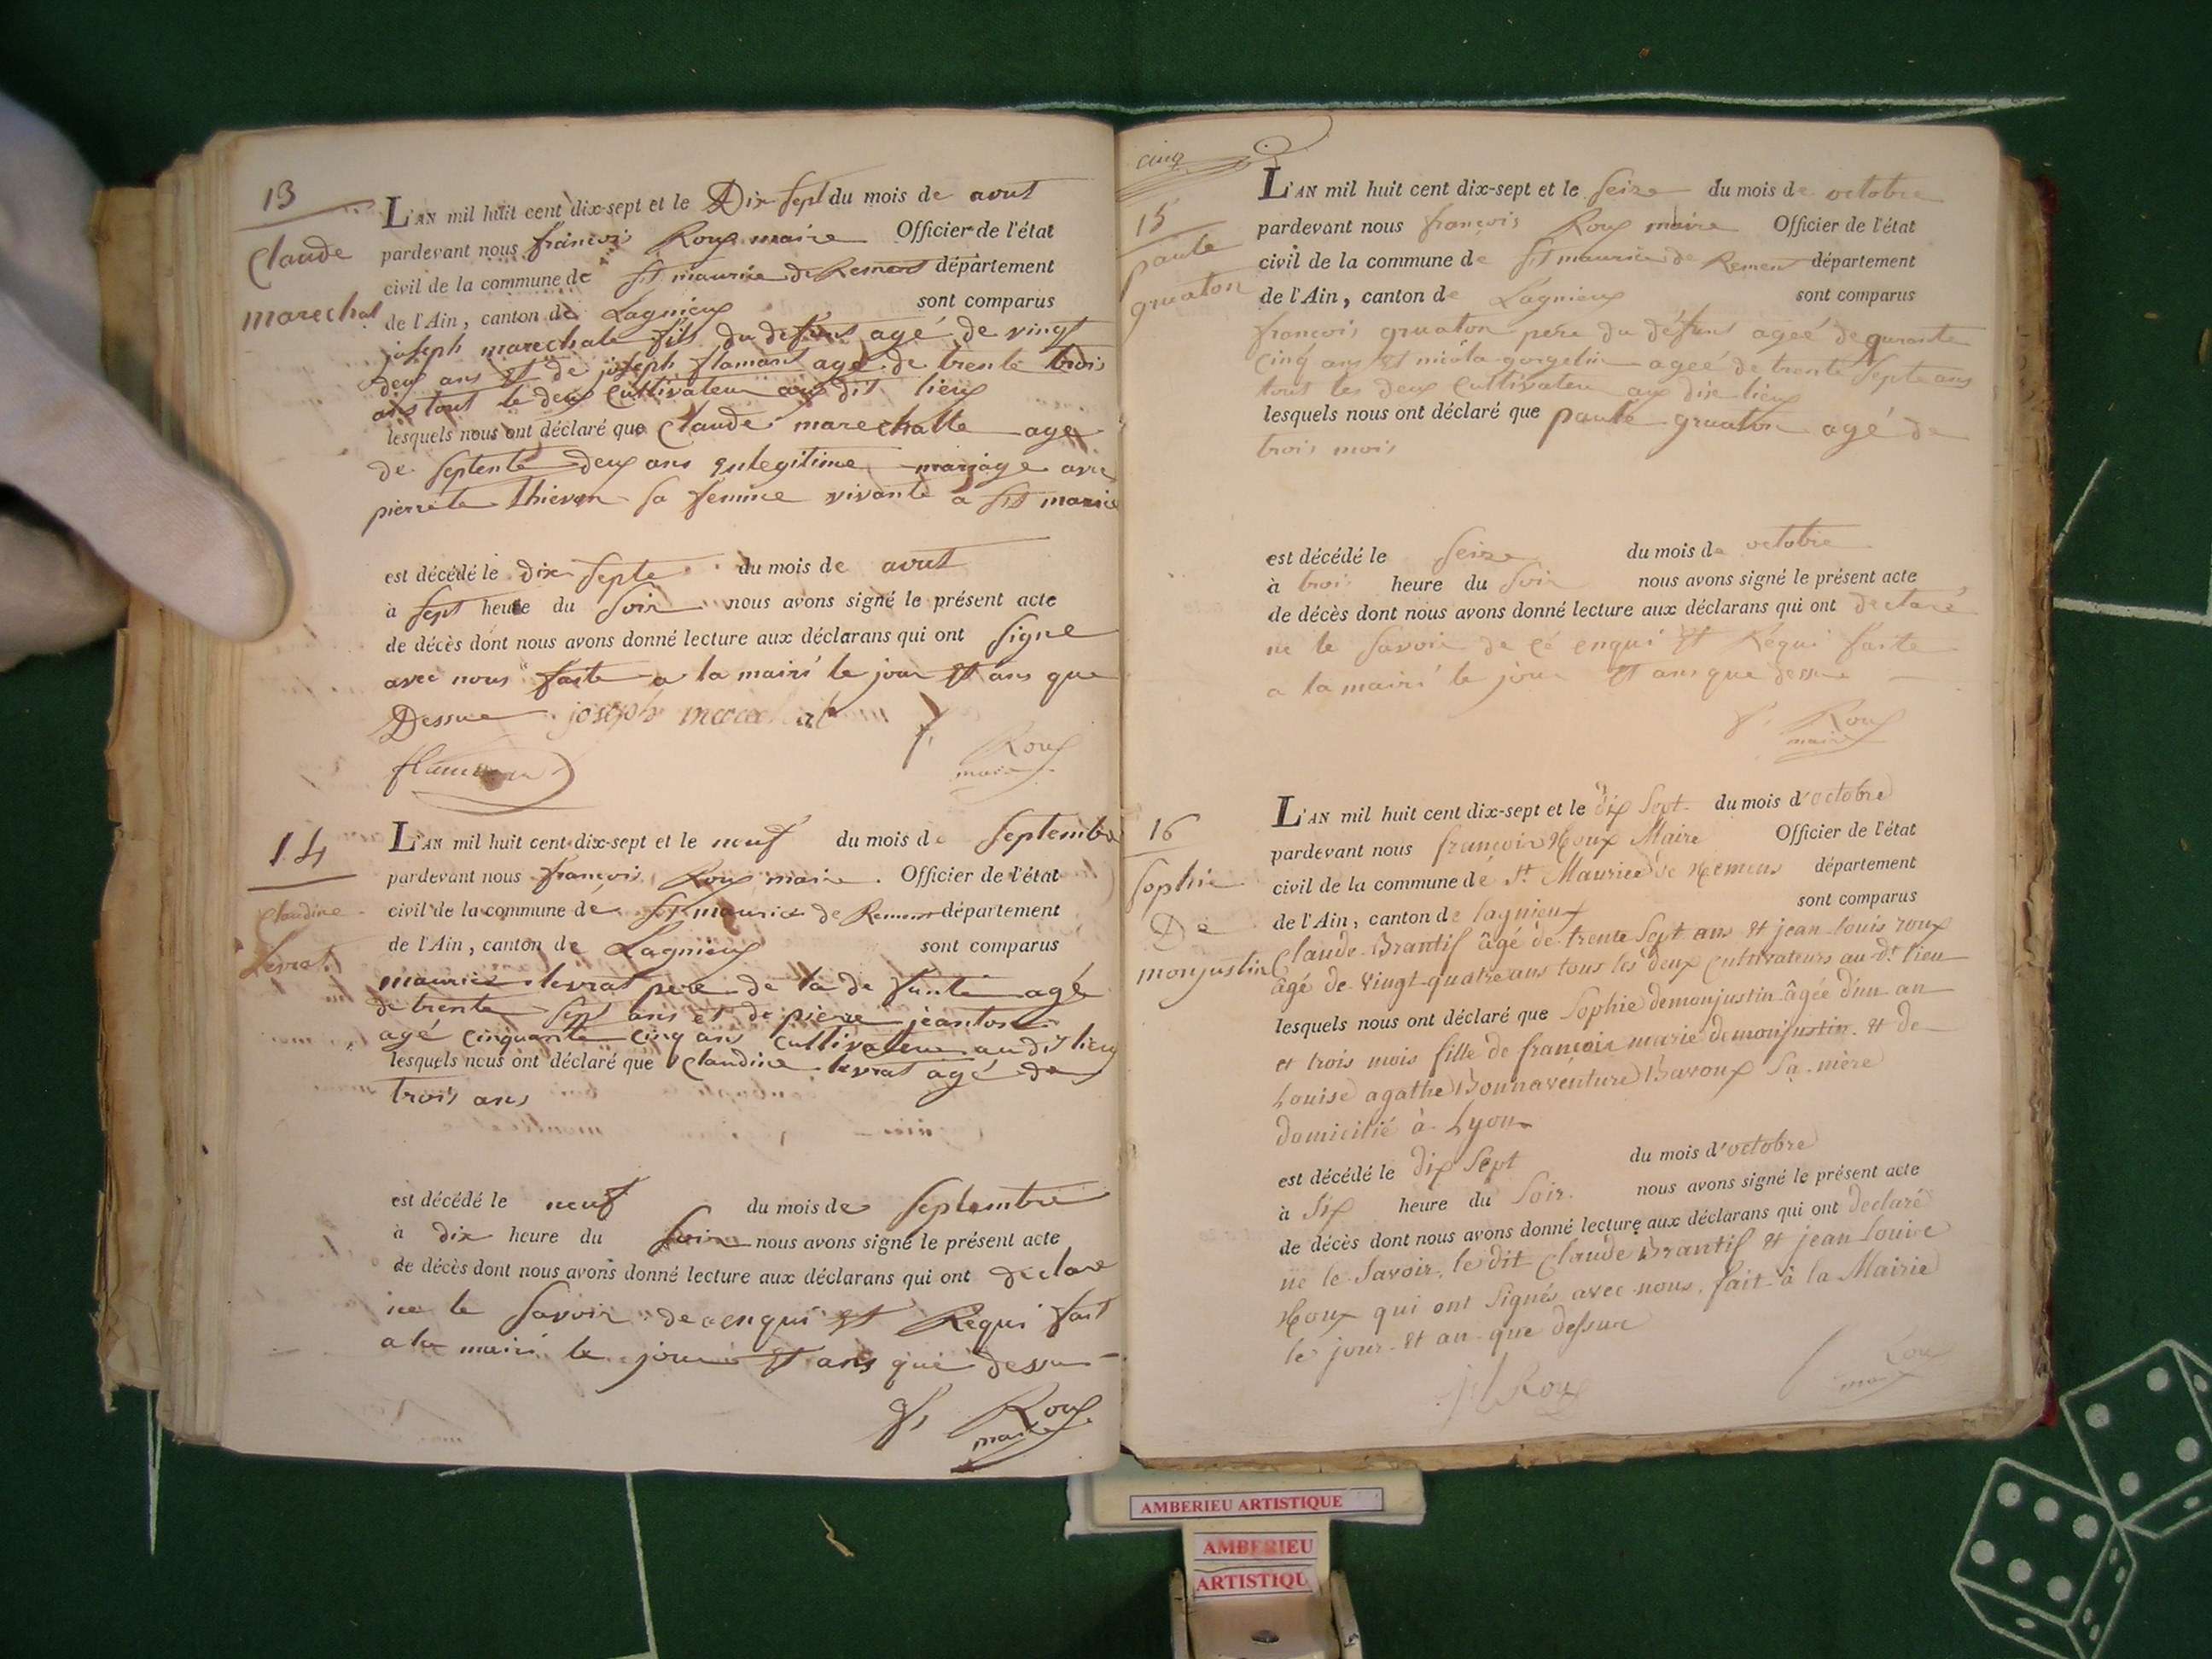 13
Claude
marechal
L'AN mil huit cent dix-sept et le Dix sept du mois de aout
pardevant nous françois Roux maire Officier de l'état
civil de la commune de St maurice de Remens département
de l'Ain, canton de Lagnieux sont comparus
joseph marechale fils du defunt agé de vingt
deux ans et de joseph flamant agé de trente trois
ans tout le deux Cultivateur au dit lieux
lesquels nous ont déclaré que Claude marechalle age
de septente deux ans enlegitime mariage avec
pierrete thieven sa femme vivante a St maurice
est décédé le dix septe du mois de aout
à sept heure du soir nous avons signé le présent acte
de décès dont nous avons donné lecture aux déclarans qui ont signe
avec nous faite a la mairi le jour et ans que
Dessue joseph marechal
Roux
maire
14
Claudine
Levrat
L'AN mil huit cent dix-sept et le neuf du mois de Septembre
pardevant nous françois Roux maire Officier de l'état
civil de la commune de St maurice de Remens département
de l'Ain, canton de Lagnieux sont comparus
maurice levrat pere de la de funte agé
de trente sept ans et de pierre jeanton
agé cinquante cinq ans cultivateur au dit lieux
lesquels nous ont déclaré que Claudine levrat agé de
trois ans
est décédé le neuf du mois de Septembre
à dix heure du soir nous avons signé le présent acte
de décès dont nous avons donné lecture aux déclarans qui ont declare
ne le savoir de enqui et Requi fait
a la mairi le jour et ans que dessu
fs Roux
maire
cinq
15
paule
gruaton
L'AN mil huit cent dix-sept et le seize du mois de octobre
pardevant nous françois Roux maire Officier de l'état
civil de la commune de St maurice de Remens département
de l'Ain, canton de Lagnieux sont comparus
françois gruaton pere du défunt ageé de quarante
cinq ans et nicola gorgelin ageé de trente septe ans
tout les deux Cultivateur au dix lieux
lesquels nous ont déclaré que paule gruaton agé de
trois mois
est décédé le seize du mois de octobre
à trois heure du soir nous avons signé le présent acte
de décès dont nous avons donné lecture aux déclarans qui ont declaré
ne le savoir de cé enqui et Requi faite
a la mairi le jour et ans que dessue
fs Roux
maire
16
Sophie
De
monjustin
L'AN mil huit cent dix-sept et le dix sept du mois d'octobre
pardevant nous françois Roux Maire Officier de l'état
civil de la commune de St Maurice de Remens département
de l'Ain, canton de lagnieux sont comparus
Claude Brantif âgé de trente sept ans et jean louis roux
âgé de vingt quatre ans tous les deux cultivateurs au dt lieu
lesquels nous ont déclaré que Sophie demonjustin âgée d'un an
et trois mois fille de françois marie demonjustin et de
Louise agathe Bonnaventure Bavoux sa mère
domicilié à Lyon
est décédé le dix sept du mois d'octobre
à six heure du soir nous avons signé le présent acte
de décès dont nous avons donné lecture aux déclarans qui ont declaré
ne le savoir, le dit Claude Brantif et jean Louise
Roux qui ont signés avec nous, fait à la Mairie
le jour et an que dessue
jl Roux
Roux
maire
AMBERIEU ARTISTIQUE
AMBERIEU
ARTISTIQU